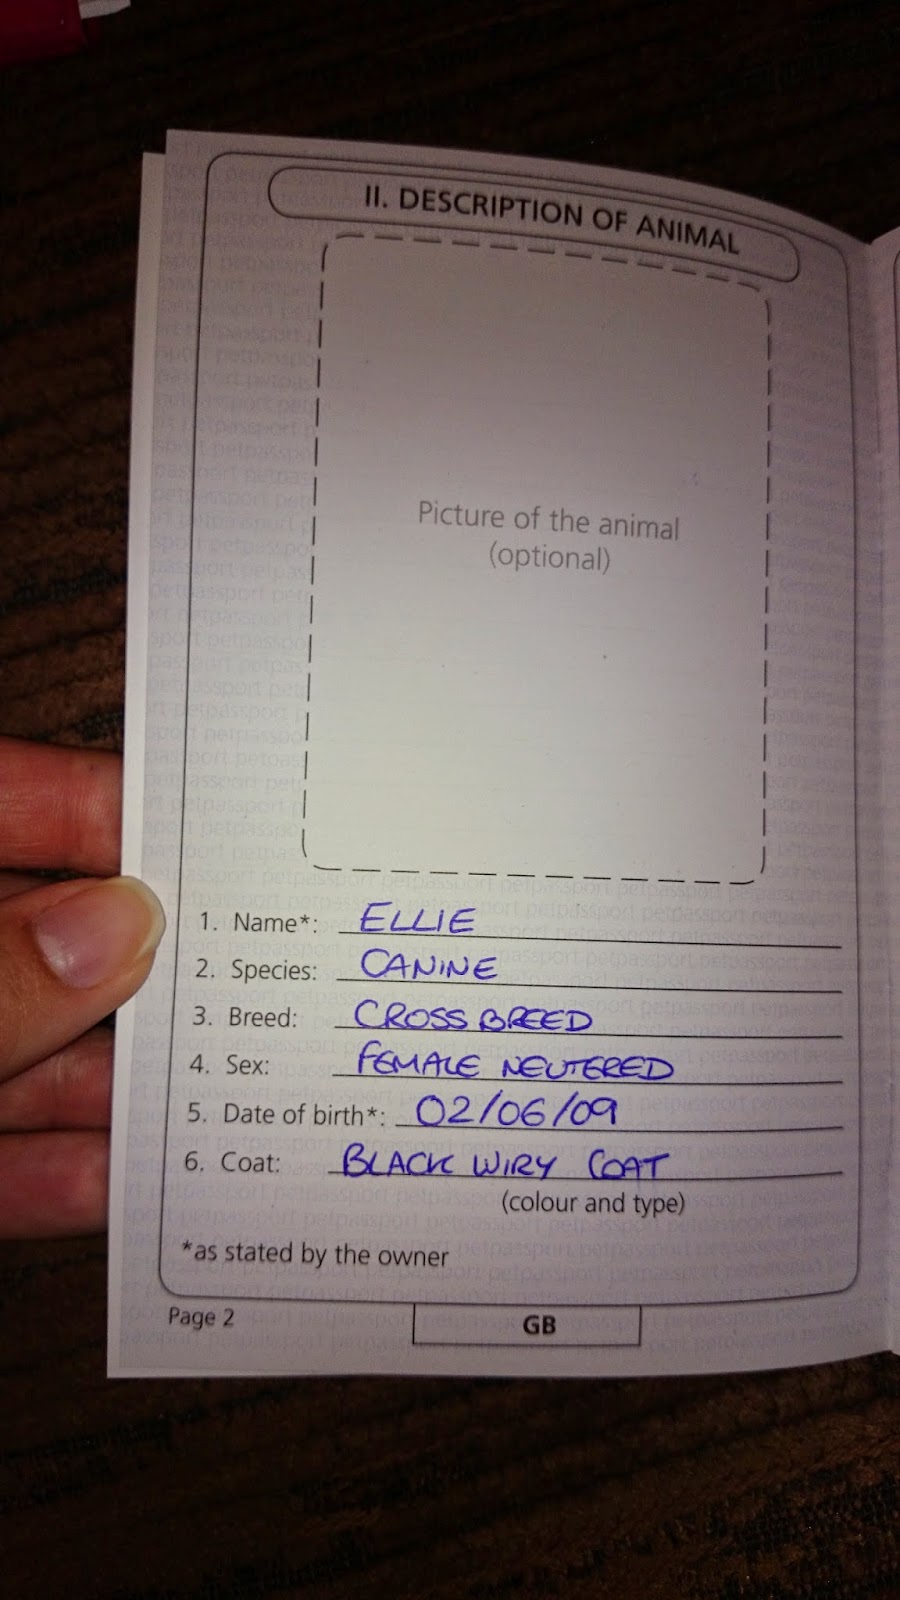 II. DESCRIPTION OF ANIMAL
Picture of the animal
(optional)
1. Name*: ELLIE
2. Species: CANINE
3. Breed: CROSS BREED
4. Sex: FEMALE NEUTERED
5. Date of birth*: 02/06/09
6. Coat: BLACK WIRY COAT
(colour and type)
*as stated by the owner
Page 2
GB